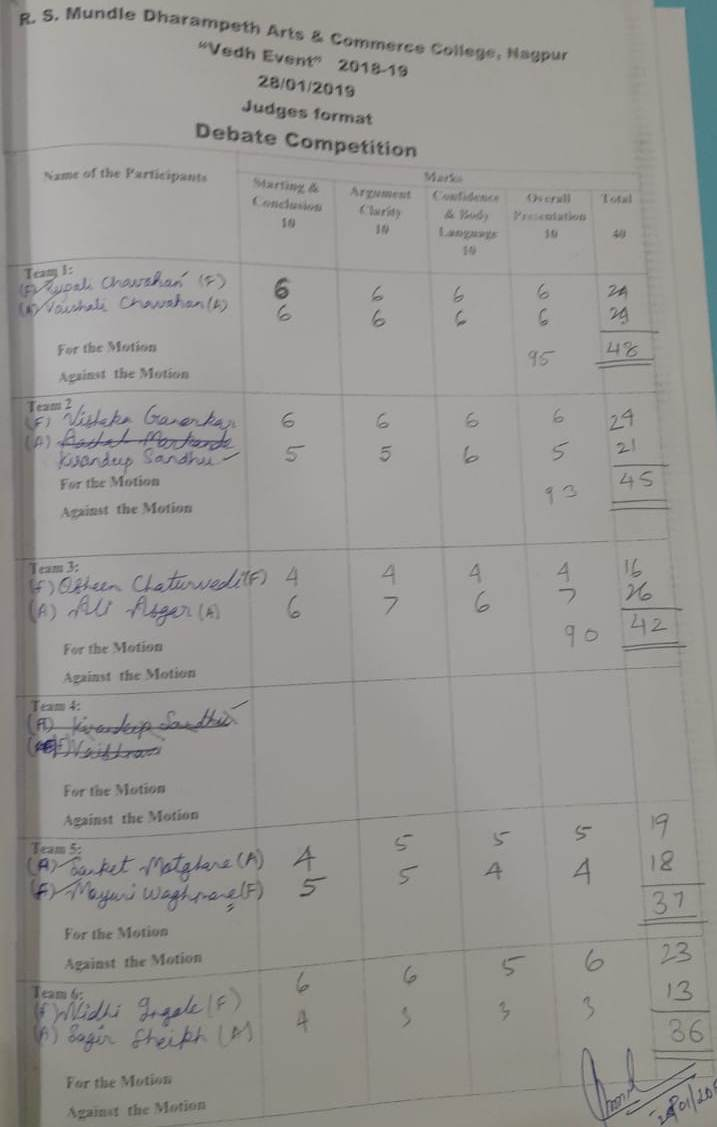 R. S. Mundle Dharampeth Arts & Commerce College, Nagpur
"Vedh Event" 2018-19
28/01/2019
Judges format
Debate Competition
Name of the Participants Marks
Starting & Conclusion 10 Argument Clarity 10 Confidence & Body Language 10 Overall Presentation 10 Total 40
Team 1:
(F) Rupali Chawahan (F) 6 6 6 6 24
(A) Vaishali Chawahan (A) 6 6 6 6 24
For the Motion 95 48
Against the Motion
Team 2
(F) Vishaka Ganorkar 6 6 6 6 24
(A)
Kirandeep Sandhu 5 5 6 5 21
For the Motion 93 45
Against the Motion
Team 3:
(F) Osheen Chaturvedi (F) 4 4 4 4 16
(A) Ali Asger (A) 6 7 6 7 26
For the Motion 90 42
Against the Motion
Team 4:
(A) Kirandeep Sandhu
For the Motion
Against the Motion
Team 5:
(A) Sanket Matghare (A) 4 5 5 5 19
(F) Mayuri Waghmare (F) 5 5 4 4 18
37
For the Motion
Against the Motion
Team 6:
(F) Nidhi Ingale (F) 6 6 5 6 23
(A) Sagir Sheikh (A) 4 3 3 3 13
36
For the Motion
Against the Motion